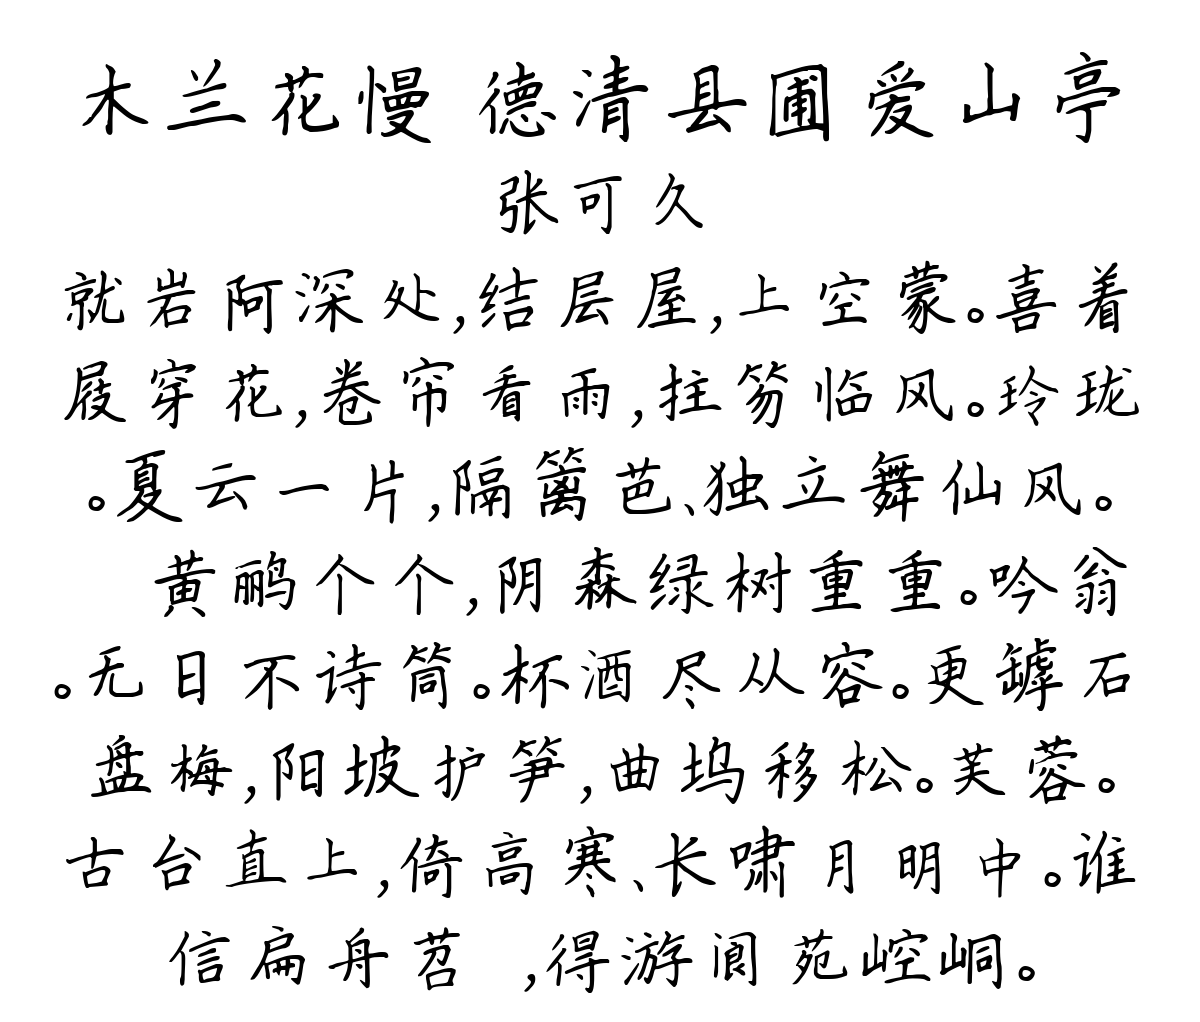 木兰花慢 德清县圃爱山亭
张可久
就岩阿深处,结层屋,上空蒙。喜着
屐穿花,卷帘看雨,拄笏临风。玲珑
。夏云一片,隔篱芭、独立舞仙风。
黄鹂个个,阴森绿树重重。吟翁
。无日不诗筒。杯酒尽从容。更罅石
盘梅,阳坡护笋,曲坞移松。芙蓉。
古台直上,倚高寒、长啸月明中。谁
信扁舟苕 ,得游阆苑崆峒。